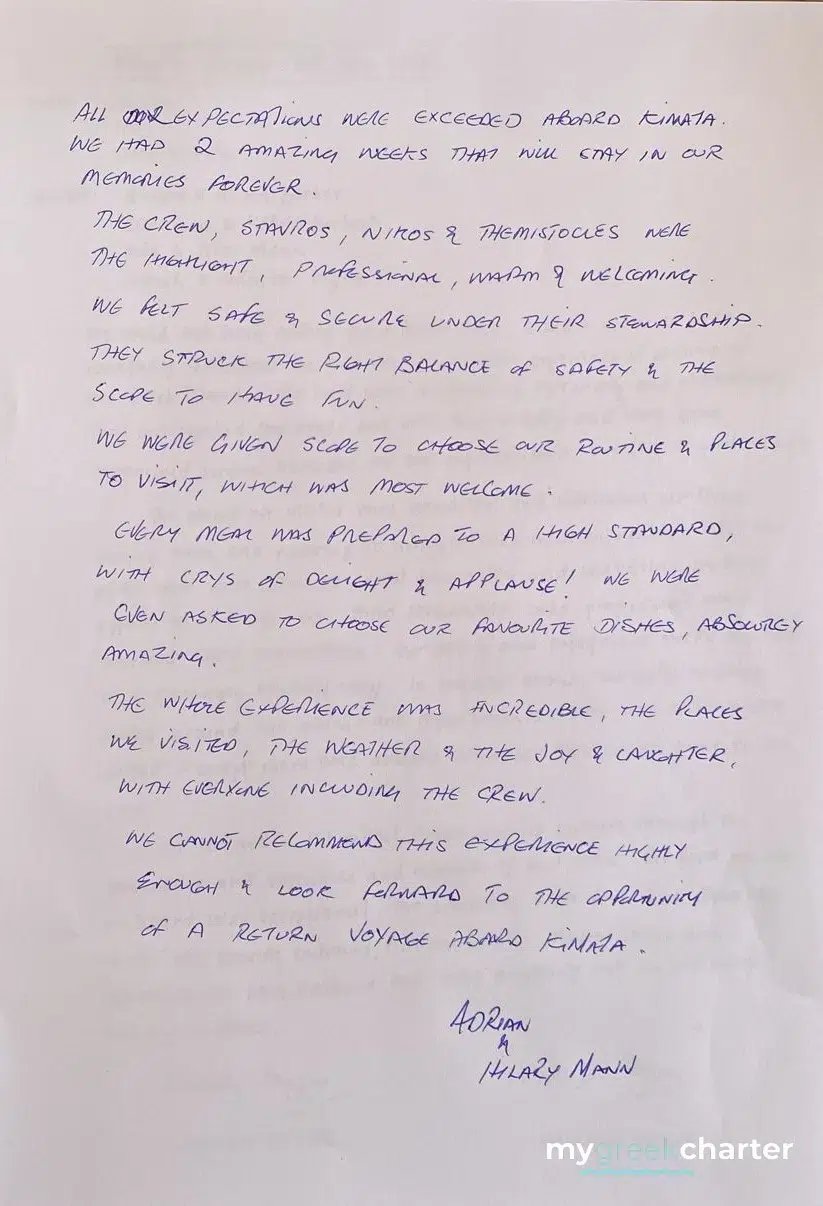 ALL OUR EXPECTATIONS WERE EXCEEDED ABOARD KIMATA.
WE HAD 2 AMAZING WEEKS THAT WILL STAY IN OUR
MEMORIES FOREVER.
THE CREW, STAVROS, NIKOS & THEMISTOCLES WERE
THE HIGHLIGHT, PROFESSIONAL, WARM & WELCOMING.
WE FELT SAFE & SECURE UNDER THEIR STEWARDSHIP.
THEY STRUCK THE RIGHT BALANCE OF SAFETY & THE
SCOPE TO HAVE FUN.
WE WERE GIVEN SCOPE TO CHOOSE OUR ROUTINE & PLACES
TO VISIT, WHICH WAS MOST WELCOME.
EVERY MEAL WAS PREPARED TO A HIGH STANDARD,
WITH CRYS OF DELIGHT & APPLAUSE! WE WERE
EVEN ASKED TO CHOOSE OUR FAVOURITE DISHES, ABSOLUREY
AMAZING.
THE WHOLE EXPERIENCE WAS INCREDIBLE, THE PLACES
WE VISITED, THE WEATHER & THE JOY & LAUGHTER,
WITH EVERYONE INCLUDING THE CREW.
WE CANNOT RECOMMEND THIS EXPERIENCE HIGHLY
ENOUGH & LOOK FORWARD TO THE OPPORTUNITY
OF A RETURN VOYAGE ABOARD KIMATA.
ADRIAN
&
HILARY MANN
mygreekcharter